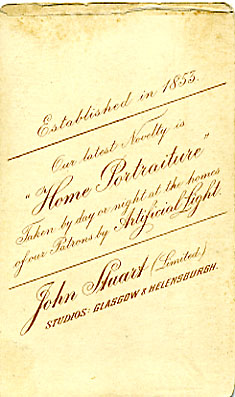 Established in 1853.
Our latest Novelty is
"Home Portraiture"
Taken by day or night at the homes
of our Patrons by Artificial Light.
John Stuart (Limited)
STUDIOS: GLASGOW & HELENSBURGH.